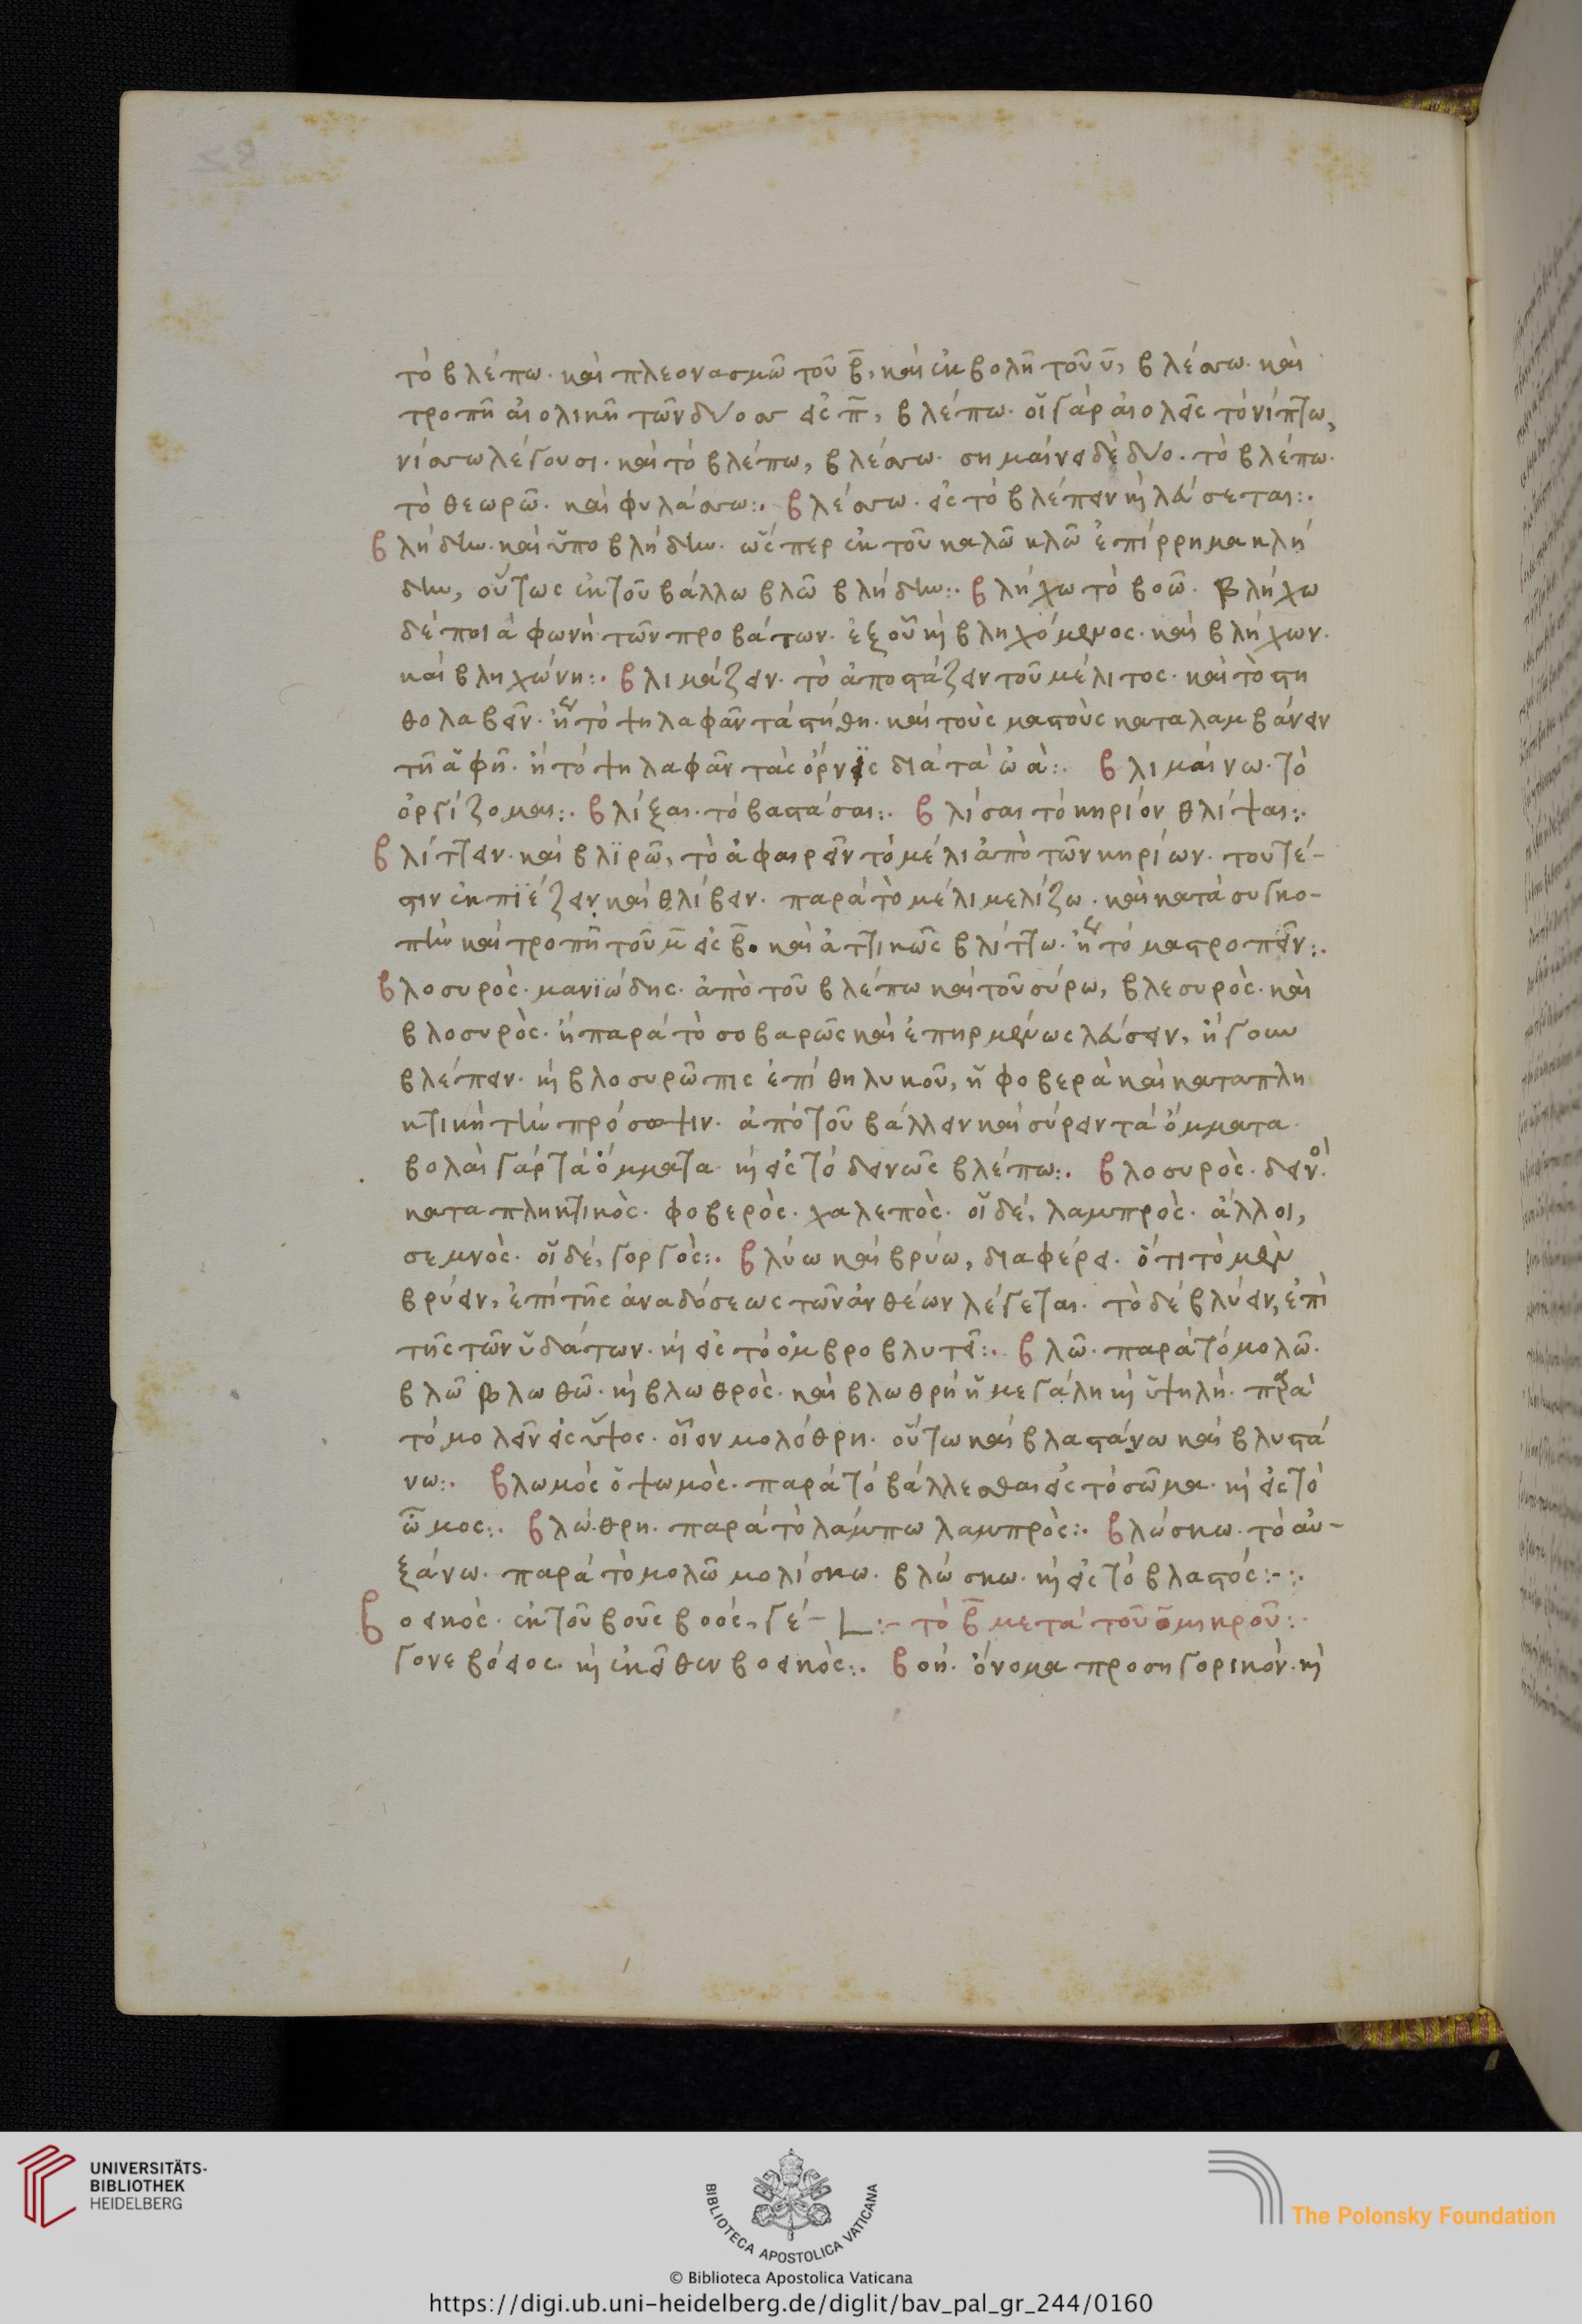 τὸ βλέπω· καὶ πλεονασμῶ τοῦ β̄, καὶ ἐκβολῆ τοῦ ν̄, βλέσσω· καὶ
τροπῆ αἰολικῆ τῶν δύο σσ εἰς π̄, βλέπω· οἳ γὰρ αἰολεῖς τὸ νίπτω,
νίσσω λέγουσι· καὶ τὸ βλέπω, βλέσσω· σημαίνει δὲ δύο· τὸ βλέπω·
τὸ θεωρῶ· καὶ φυλάσσω:. βλέσσω· εἰς τὸ βλέπειν κὶ λεύσεται:.
βλήδην· καὶ ὕποβλήδην· ὥςπερ ἐκ τοῦ καλῶ κλῶ ἐπίρρημα κλή
δην, οὕτως ἐκ τοῦ βάλλω βλῶ βλήδην:. βλήχω τὸ βοῶ· βλήχω
δὲ ποιὰ φωνὴ τῶν προβάτων· ἐξ οὗ κὶ βληχόμενος· καὶ βλήχων·
καὶ βληχώνη:. βλιμάζειν· τὸ ἀποστάζειν τοῦ μέλιτος· καὶ τὸ στη
θολαβεῖν· ἢ τὸ ψηλαφᾶν τὰ στήθη· καὶ τοὺς μαστοὺς καταλαμβάνειν
τῆ ἁφῆ· ἢ τὸ ψηλαφᾶν τὰς ὄρνϊς διὰ τὰ ὠὰ:. βλιμαίνω· τὸ
ὀργίζομαι:. βλίξαι· τὸ βαστάσαι:. βλίσαι τὸ κηρίον θλίψαι:.
βλίττειν· καὶ βλϊρῶ, τὸ ἀφαιρεῖν τὸ μέλι ἀπὸ τῶν κηρίων· τουτέ-
στιν ἐκπϊέζειν καὶ θλίβειν· παρὰ τὸ μέλι μελίζω· καὶ κατὰ συγκο-
πὴν καὶ τροπῆ τοῦ μ̄ εἰς β̄· καὶ ἀττικῶς βλίττω· ἢ τὸ μαστροπεῖν:.
βλοσυρὸς· μανϊώδης· ἀπὸ τοῦ βλέπω καὶ τοῦ σύρω, βλεσυρὸς· καὶ
βλοσυρὸς· ἢ παρὰ τὸ σοβαρῶς καὶ ἐπηρμένως λεύσειν, ἤγουν
βλέπειν· κὶ βλοσυρῶπις ἐπὶ θηλυκοῦ, ἡ φοβερὰ καὶ καταπλη
κτικὴ τὴν πρόσοψιν· ἀπὸ τοῦ βάλλειν καὶ σύρειν τὰ ὄμματα·
βολαὶ γὰρ τὰ ὄμματα· κὶ εἰς τὸ δεινῶς βλέπω:. βλοσυρὸς· δεινὸ·
καταπληκτικὸς· φοβερὸς· χαλεπὸς· οἳ δὲ, λαμπρὸς· ἄλλοι,
σεμνὸς· οἳ δὲ, γοργὸς:. βλύω καὶ βρύω, διαφέρει· ὅτι τὸ μὲν
βρύειν, ἐπὶ τῆς ἀναδόσεως τῶν ἀνθέων λέγεται· τὸ δὲ βλύειν, ἐπὶ
τῆς τῶν ὑδάτων· κὶ εἰς τὸ ὀμβροβλυτεῖ:. βλῶ· παρὰ τὸ μολῶ·
βλῶ βλωθῶ· κὶ βλωθρὸς· καὶ βλωθρὴ ἡ μεγάλη κὶ ὑψηλὴ· παρὰ
τὸ μολεῖν εἰς ὕψος· οἷον μολόθρη· οὕτω καὶ βλαστάνω καὶ βλυστά
νω:. βλωμὸς ὁ ψωμὸς· παρὰ τὸ βάλλεσθαι εἰς τὸ σῶμα· κὶ εἰς τὸ
ὦμος:. βλώθρη· παρὰ τὸ λάμπω λαμπρὸς:. βλώσκω· τὸ αὐ-
ξάνω· παρὰ τὸ μολῶ μολίσκω· βλώσκω· κὶ εἰς τὸ βλαστός:-:.
βοεικὸς· ἐκ τοῦ βοῦς βοός, γέ- :- τὸ β̄ μετὰ τοῦ ο̄μικροῦ:·
γονε βόειος· κὶ ἐκεῖθεν βοεικὸς:. βοή· ὄνομα προσηγορικόν· κὶ
UNIVERSITÄTS-
BIBLIOTHEK
HEIDELBERG
BIBLIOTECA APOSTOLICA VATICANA
The Polonsky Foundation
© Biblioteca Apostolica Vaticana
https://digi.ub.uni-heidelberg.de/diglit/bav_pal_gr_244/0160